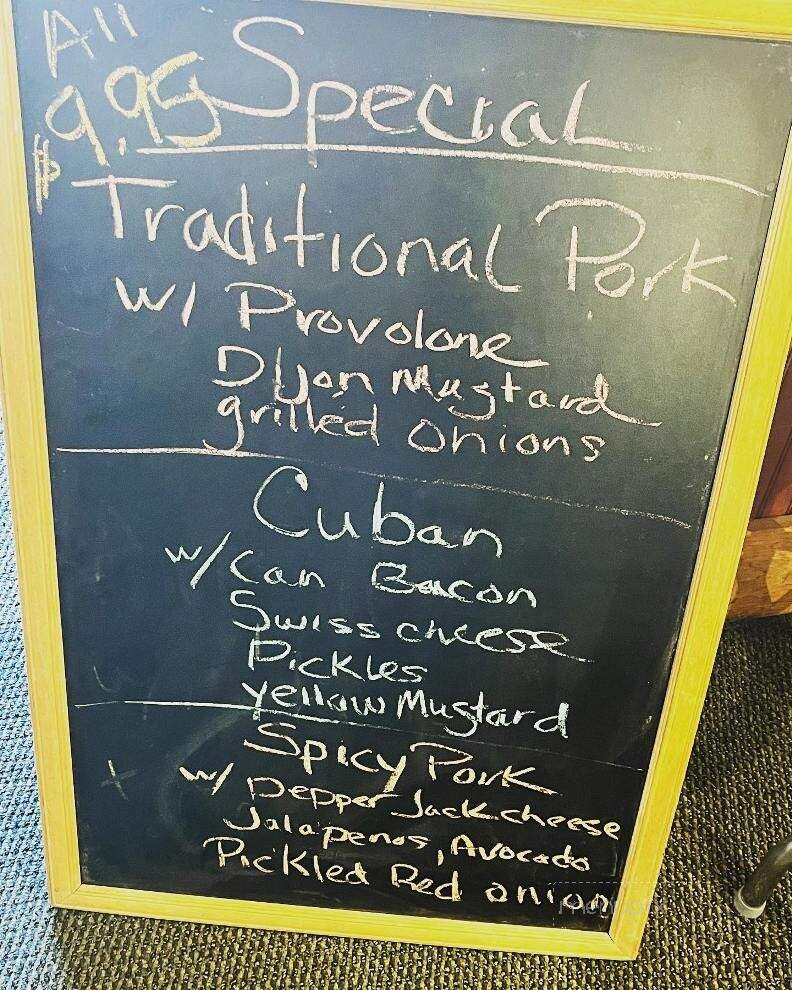 All
$9.95 Special
Traditional Pork
w/ Provolone
Dijon Mustard
grilled onions
Cuban
w/ Can Bacon
Swiss cheese
Pickles
yellow Mustard
Spicy Pork
w/ Pepper Jack cheese
Jalapenos, Avocado
Pickled Red onion